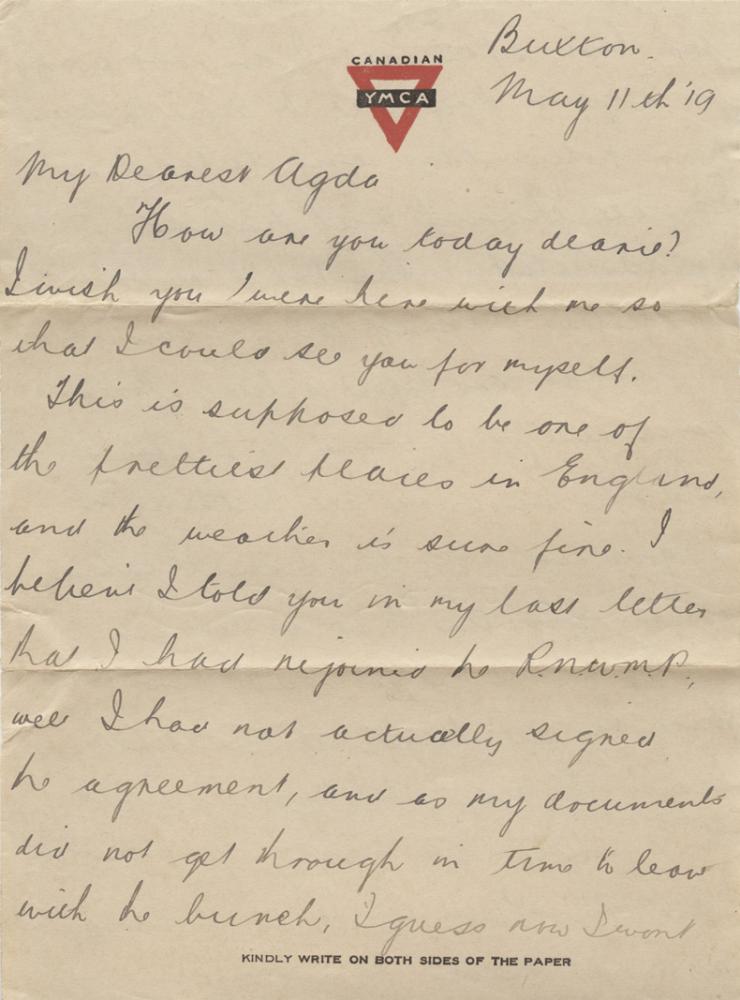 Buxton.
CANADIAN
YMCA
May 11th '19
My Dearest Agda
How are you today dearie?
I wish you were here with me so
that I could see you for myself.
This is supposed to be one of
the prettiest places in England,
and the weather is sure fine. I
believe I told you in my last letter
that I had rejoined the R.N.W.M.P.,
well I had not actually signed
the agreement, and as my documents
did not get through in time to leave
with the bunch, I guess now I wont
KINDLY WRITE ON BOTH SIDES OF THE PAPER